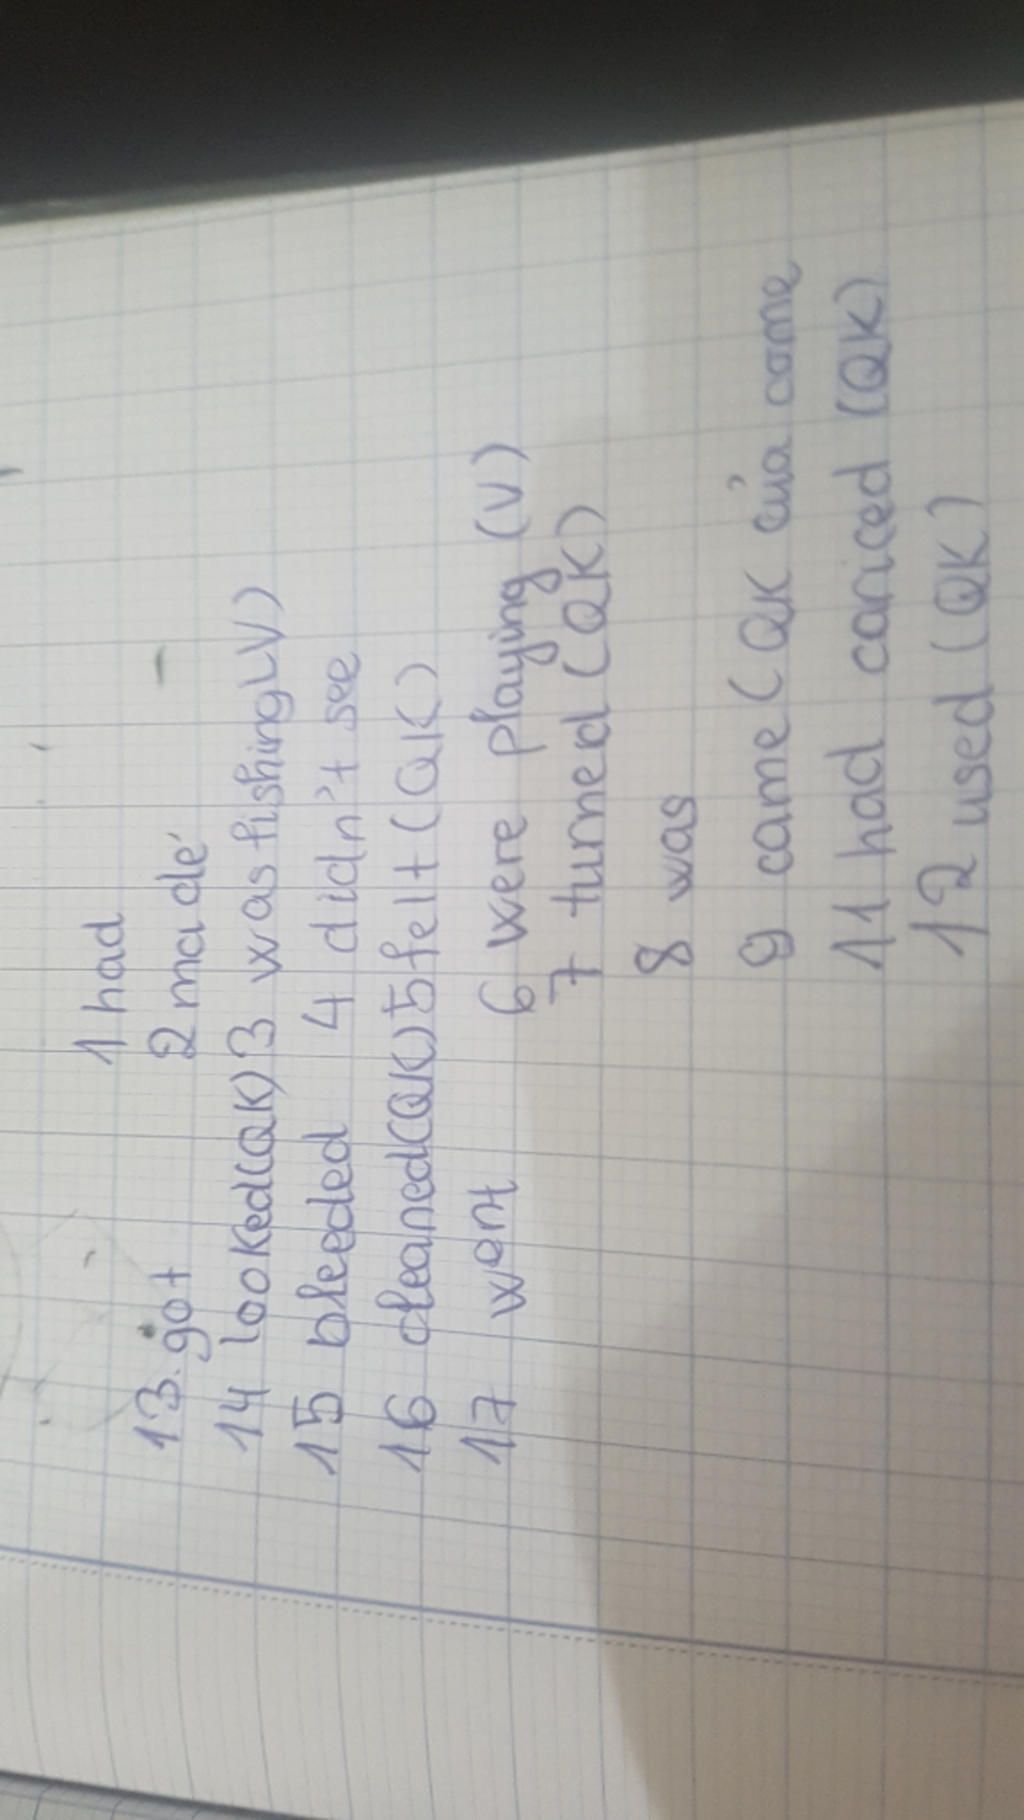 1 had
2 made
13. got
14 looked(QK) 3 was fishing(V)
15 bleeded 4 didn't see
16 cleaned(QK) 5 felt (QK)
17 went 6 were playing (V)
7 turned (QK)
8 was
9 came (QK của come
11 had cariced (QK)
12 used (QK)